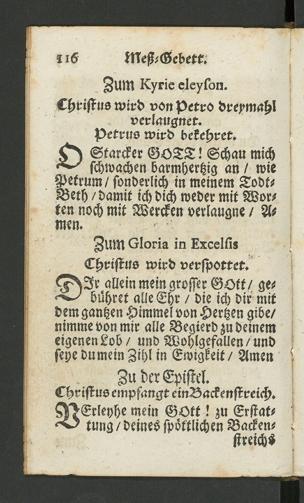 116 Meß-Gebett.
Zum Kyrie eleyson.
Christus wird von Petro dreymahl
verlaugnet.
Petrus wird bekehret.
O Starcker GOTT! Schau mich
schwachen barmhertzig an / wie
Petrum / sonderlich in meinem Todt-
Beth / damit ich dich weder mit Wor-
ten noch mit Wercken verlaugne / A-
men.
Zum Gloria in Excelsis
Christus wird verspottet.
DIr allein mein grosser GOtt / ge-
bühret alle Ehr / die ich dir mit
dem gantzen Himmel von Hertzen gibe/
nimme von mir alle Begierd zu deinem
eigenen Lob / und Wohlgefallen / und
seye du mein Zihl in Ewigkeit / Amen
Zu der Epistel.
Christus empfangt ein Backenstreich.
VErleyhe mein GOtt! zu Erstat-
tung / deines spöttlichen Backen-
streichs